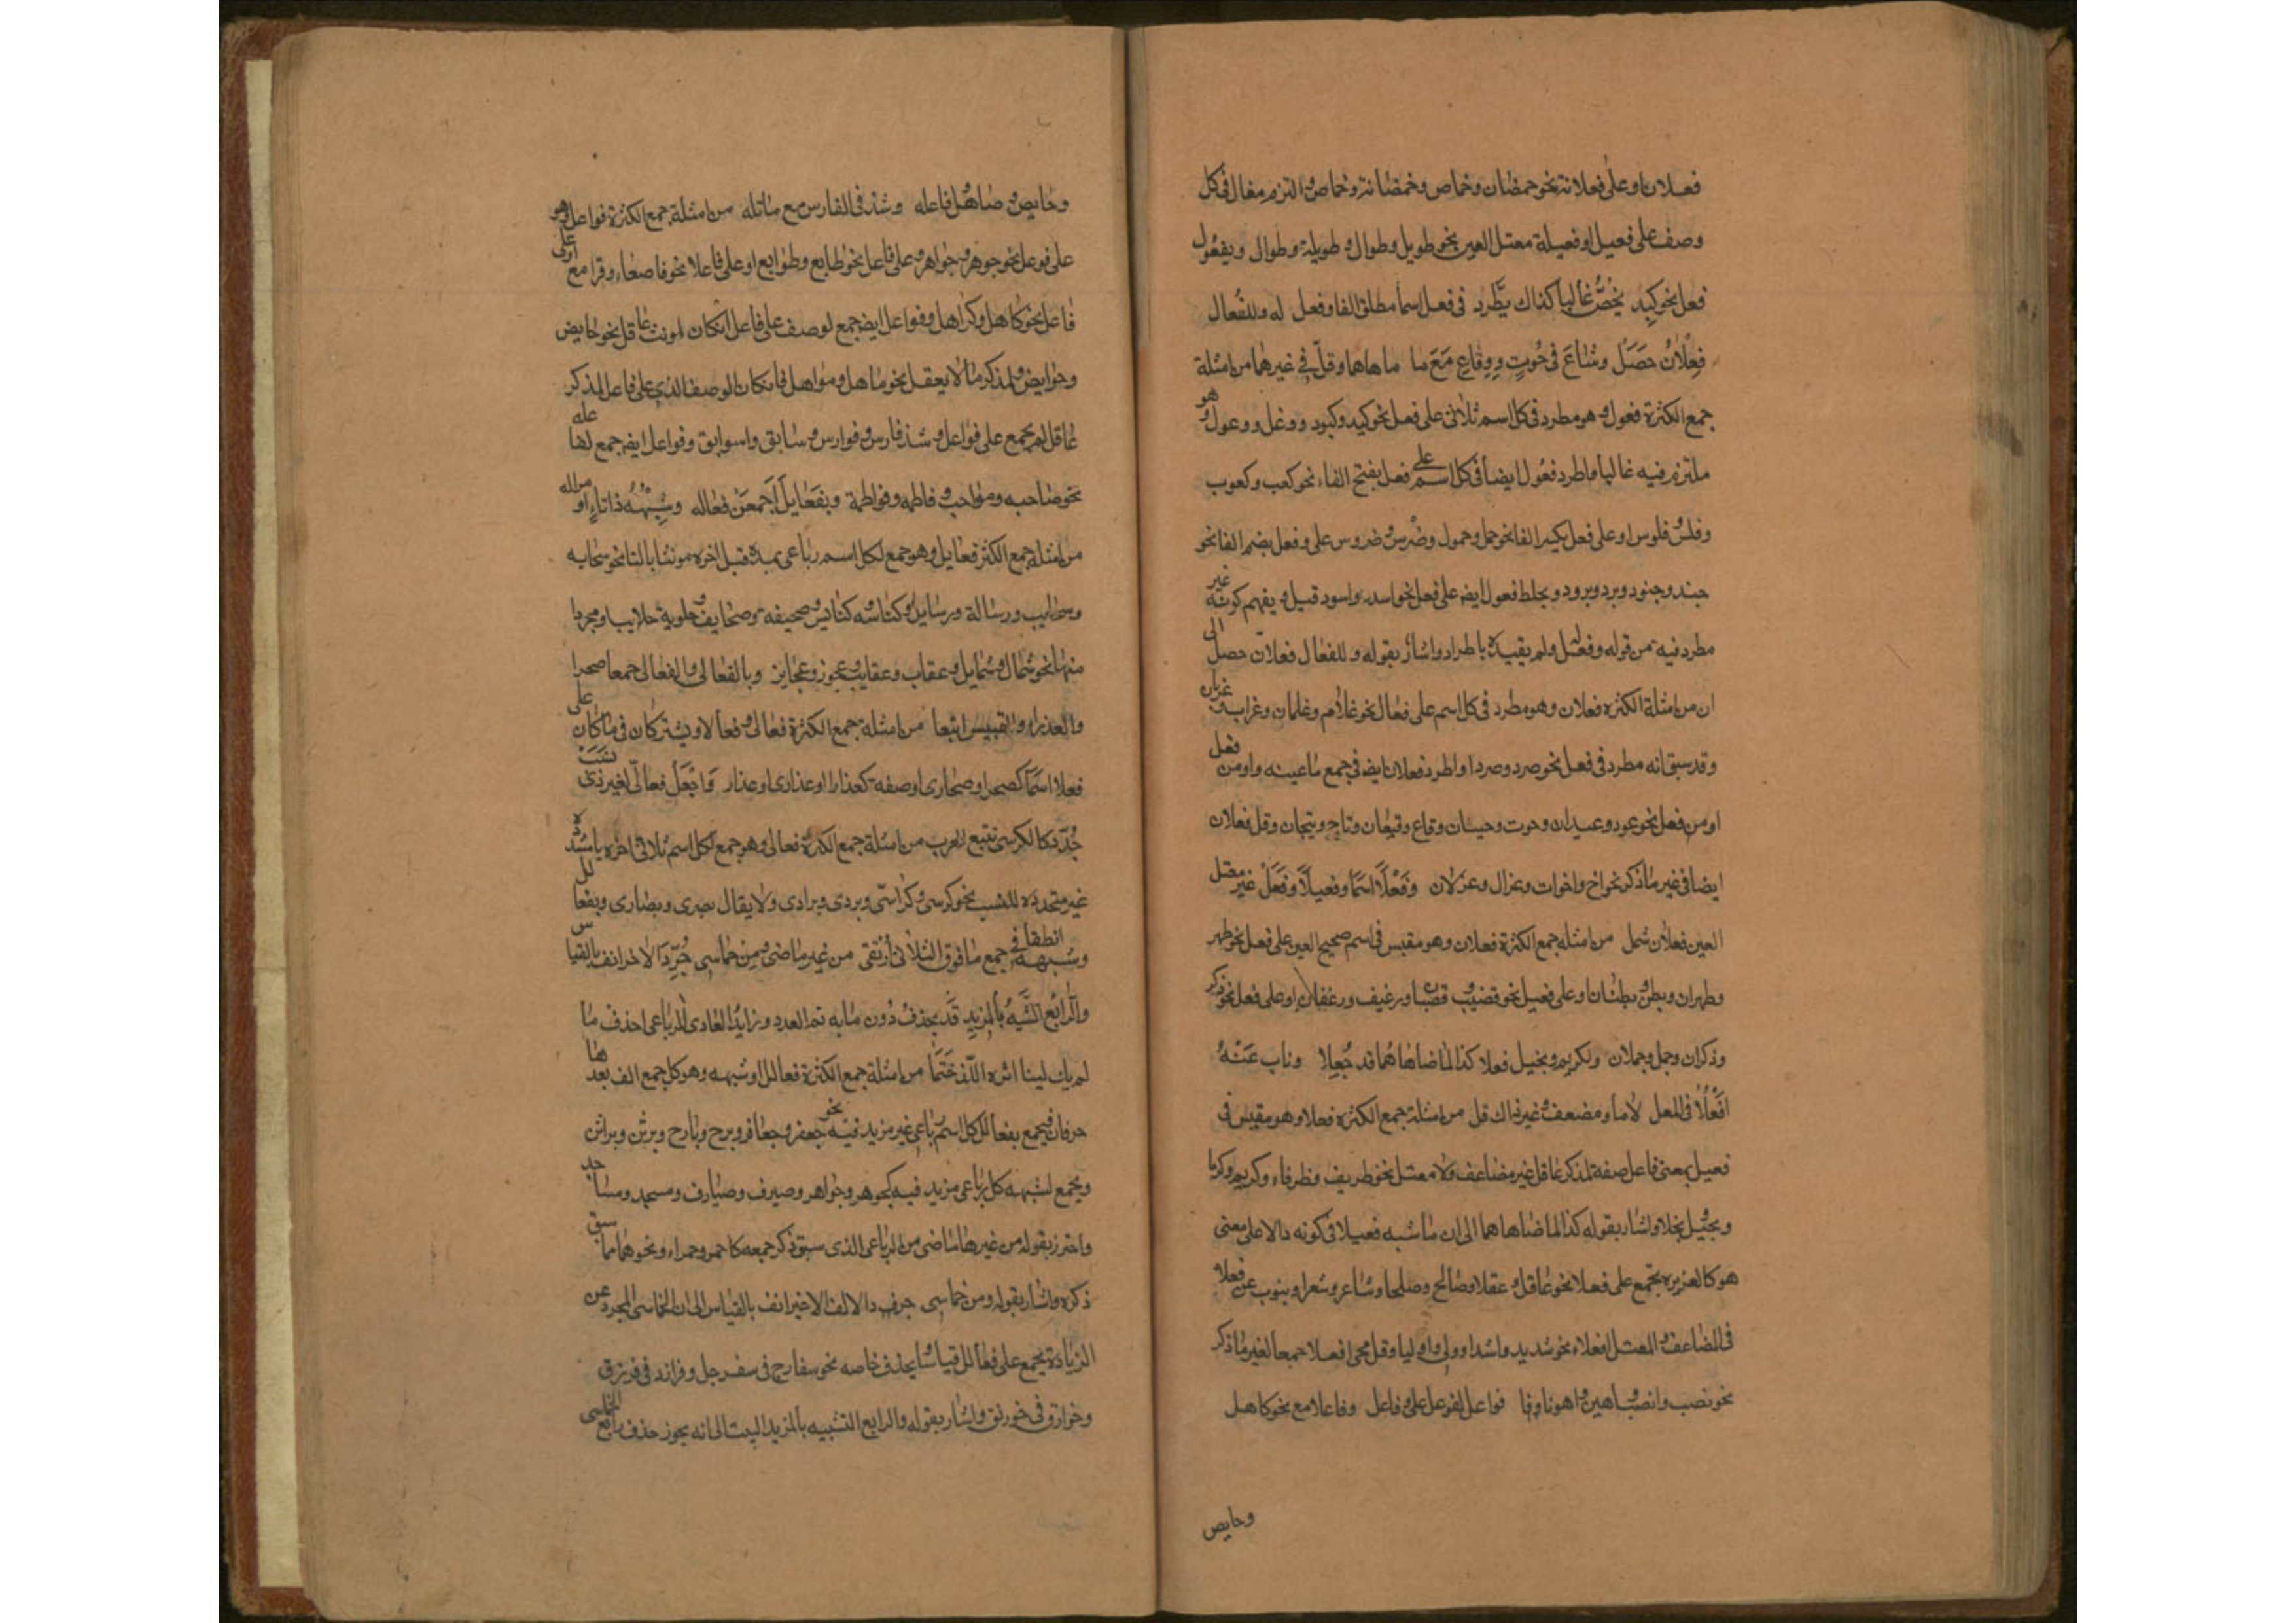 فعلان او على فعلانة نحو خمصان وخماص وخمصانة وخماص والتزم فعال في كل
وصف على فعيل او فعيلة معتل العين نحو طويل وطوال و طويلة وطوال وبفعول
فعل نحو كبد يخص غالبا كذاك يطرد في فعل اسما مطلق الفا وفعل له وللفعال
فعلان حصل وشاع في حوت وقاع مع ما ضاهاهما وقل في غيرهما من امثلة
جمع الكثرة فعول وهو مطرد في كل اسم ثلاثي على فعل نحو كبد وكبود ووعل ووعول وهو
ملتزم فيه غالبا واطرد فعول ايضا في كل اسم على فعل بفتح الفاء نحو كعب وكعوب
وفلس وفلوس او على فعل بكسر الفا نحو حمل وحمول وضرس وضروس على وفعل بضم الفا نحو
جند وجنود وبرد وبرود ويحفظ فعول ايض على فعل نحو اسد واسود قيل ويفهم كونه غير
مطرد فيه من قوله وفعل له ولم يقيده باطراد واشار بقوله وللفعال فعلان حصل الى
ان من امثلة الكثره فعلان وهو مطرد في كل اسم على فعال نحو غلام وغلمان وغراب وغربان
وقد سبق انه مطرد في فعل نحو صرد وصردان واطرد فعلان ايض في جمع ما عينه واو من فعل
او من فعل نحو عود وعيدان وحوت وحيتان وقاع وقيعان وتاج وتيجان وقل فعلان
ايضا في غير ما ذكر نحو اخ واخوات وغزال وغزلان وفعلا اسما وفعيلا وفعل غير معتل
العين فعلان شمل من امثله جمع الكثرة فعلان وهو مقيس في اسم صحيح العين على فعل نحو ظهر
وظهران وبطن وبطنان وعلى فعيل نحو قضيب وقضبان ورغيف ورغفان او على فعل نحو ذكر
وذكران وجمل وجملان ولكريم وبخيل فعلا كذا لما ضاهاهما قد جعلا وناب عنه
افعلا في المعل لاما ومضعف وغير ذاك قل من امثلة جمع الكثره فعلا وهو مقيس في
فعيل بمعنى فاعل صفة لمذكر عاقل غير مضاعف ولا معتل نحو ظريف وظرفاء وكريم وكرما
وبخيل وبخلا واشار بقوله كذا لما ضاهاهما الى ان ما شبه فعيلا في كونه دالا على معنى
هو كالغريزه يجمع على فعلا نحو عاقل وعقلا وصالح وصلحا وشاعر وشعرا وينوب عن فعلا
في المضاعف والمعتل افعلاء نحو شديد واشدا وولي واوليا وقل مجي افعلا جمعا لغير ما ذكر
نحو نصيب وانصبا وهين واهونا فواعل لفوعل وفاعل وفاعلاء مع نحو كاهل
وحايض
وحايض وصاهل وفاعله وشذ في الفارس مع ماثله من امثلة جمع الكثرة فواعل وهو
على فوعل نحو جوهر وجواهر وعلى فاعل نحو طابع وطوابع او على فاعلا نحو قاصعاء وقواصع او على
فاعل نحو كاهل وكواهل وفواعل ايض جمع لوصف على فاعل ان كان لمونث عاقل نحو حايض
وحوايض ولمذكر ما لا يعقل نحو صاهل وصواهل فان كان الوصف الذي على فاعل لمذكر
عاقل لم يجمع على فواعل وشذ فارس وفوارس وسابق وسوابق وفواعل ايض جمع لفاعله
نحو صاحبه وصواحب وفاطمه وفواطمة وبفعايل اجمعن فعاله وشبهه ذا تاء او مزاله
من امثلة جمع الكثرة فعايل وهو جمع لكل اسم رباعي بمدة قبل اخره مونثا بالتا نحو سحابه
وسحايب ورسالة ورسايل وكناسه وكنايس وصحيفه وصحايف وحلوبة وحلايب او مجردا
منها نحو شمال وشمايل وعقاب وعقايب وعجوز وعجايز وبالفعالي والفعالى جمعا صحرا
والعذراء والقيس اتبعا من امثلة جمع الكثرة فعالى وفعالي ويشتركان في ما كان على
فعلا اسما كصحرا وصحارى او صفة كعذرا وعذارى وعذار واجعل فعالي لغير ذي نسب
جدد كالكرسي تتبع العرب من امثلة جمع الكثرة فعالي وهو جمع لكل اسم ثلاثي اخره يا مشدده
غير متجدده للنسب نحو كرسي وكراسي وبردي وبرادي ولا يقال بصري وبصاري وبفعالل
وشبهه انطقا في جمع ما فوق الثلاثة ارتقى من غير ما مضى ومن خماسي جرد الاخر انف بالقياس
والرابع الشبيه بالمزيد قد يحذف دون ما به تم العدد وزايد العادي الرباعي احذف ما
لم يك لينا اثره اللذ ختما من امثلة جمع الكثرة فعالل وشبهه وهو كل جمع الف بعدها
حرفان فيجمع بفعالل كل اسم رباعي غير مزيد فيه نحو جعفر وجعافر وبرج وبارج وبرثن وبراثن
ويجمع لشبهه كل رباعي مزيد فيه كجوهر وجواهر وصيرف وصيارف ومسجد ومساجد
واحترز بقوله من غير ما مضى من الرباعي الذي سبق ذكر جمعه كاحمر وحمراء ونحوهما مما سبق
ذكره واشار بقوله ومن خماسي جرد الاخر انف بالقياس الى ان الخماسي المجرد عن
الزيادة يجمع على فعالل قياسا بحذف خامسه نحو سفارج في سفرجل وفرازد في فرزدق
وخوارق في خورنق واشار بقوله والرابع الشبيه بالمزيد البيت الى انه يجوز حذف رابع الخماسي